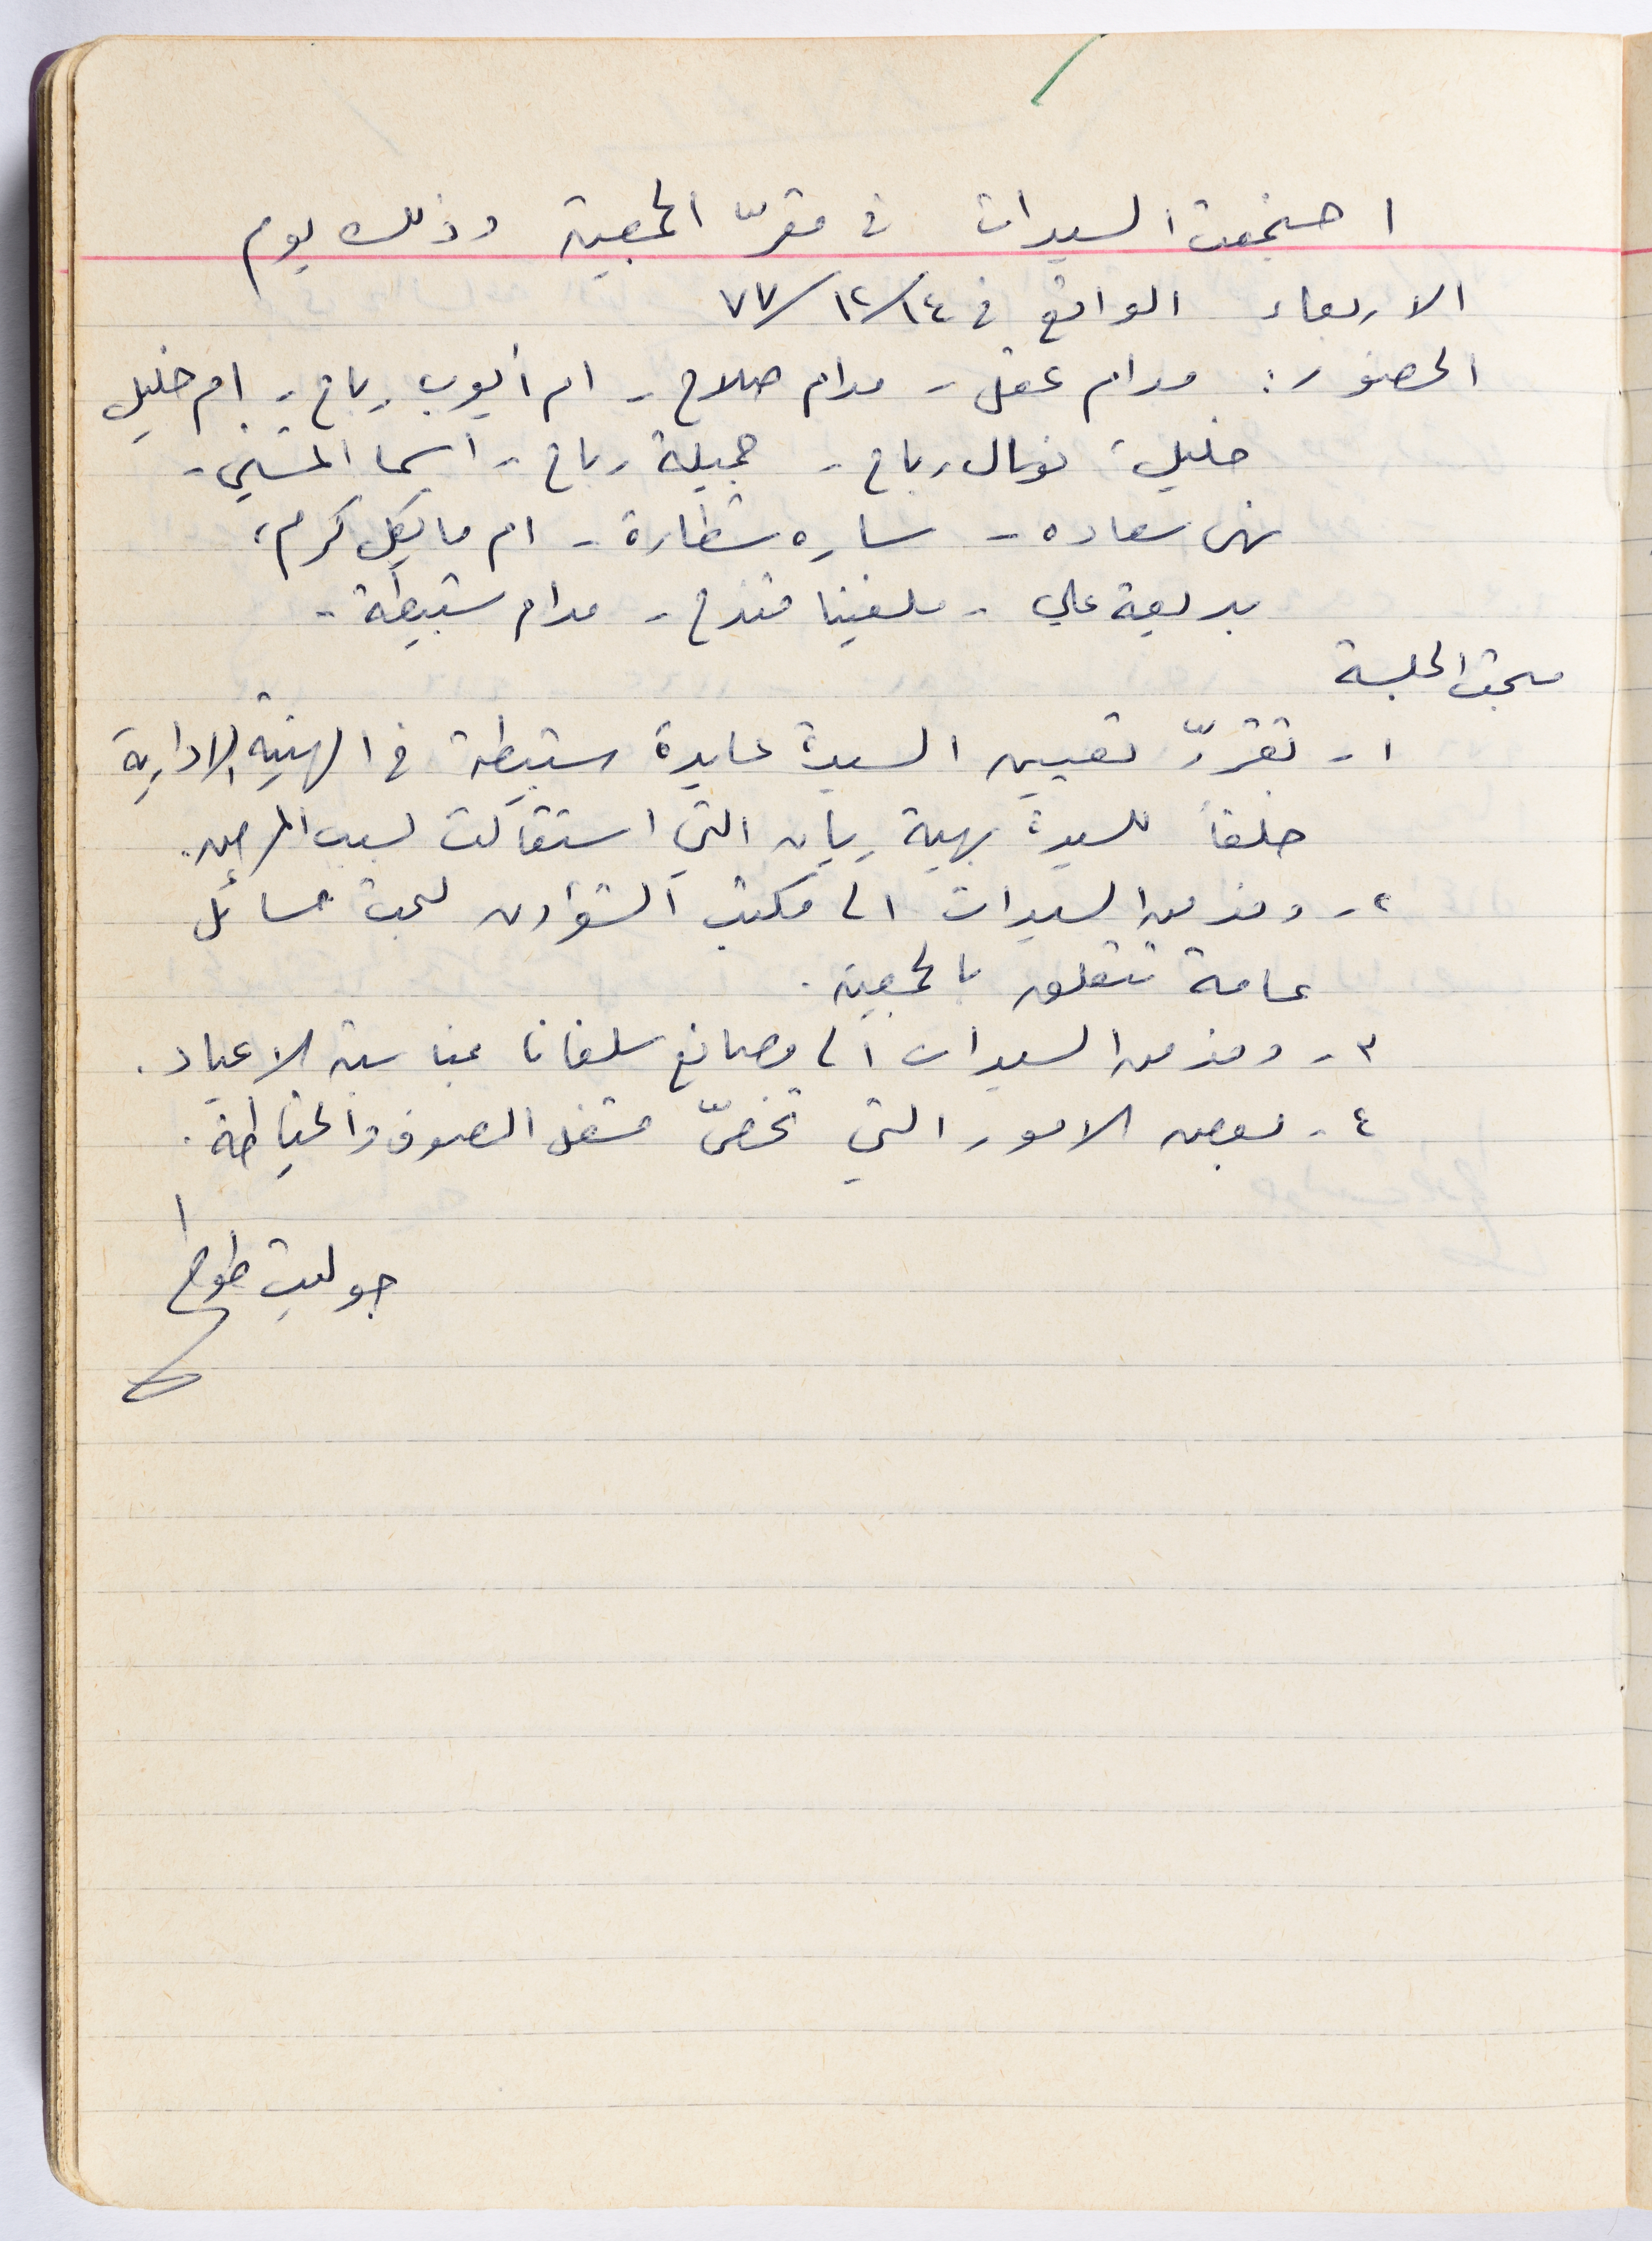 اجتمعت السيدات في مقرّ الجمعية وذلك يوم
الاربعاء الواقع في ١٤/١٢/٧٧
الحضور: مدام عقل - مدام صلاح - ام أيوب رباح - ام خليل
خليل، نوال رباح - جميلة رباح - اسما المتني -
نهى سعاده - ساره شطارة - ام مايكل كرم،
بديعة علي - ملفينا قندح - مدام سبيطة -
محتو الجلسة
١- تقررّ تعيين السيدة عايدة سبيطة في الهيئة الادارية
خلفاً للسيدة بهية ريان التي استقالت لسبب المرض.
٢- وفد من السيدات الى مكتب الشؤون لبحث مسائل
عامة تتعلق بالجمعية.
٣- وفد من السيدات الى مصانع سلفانا بمناسبة الاعياد.
٤- بعض الامور التي تخصّ مشغل الصوف والخياطة.
جوليت